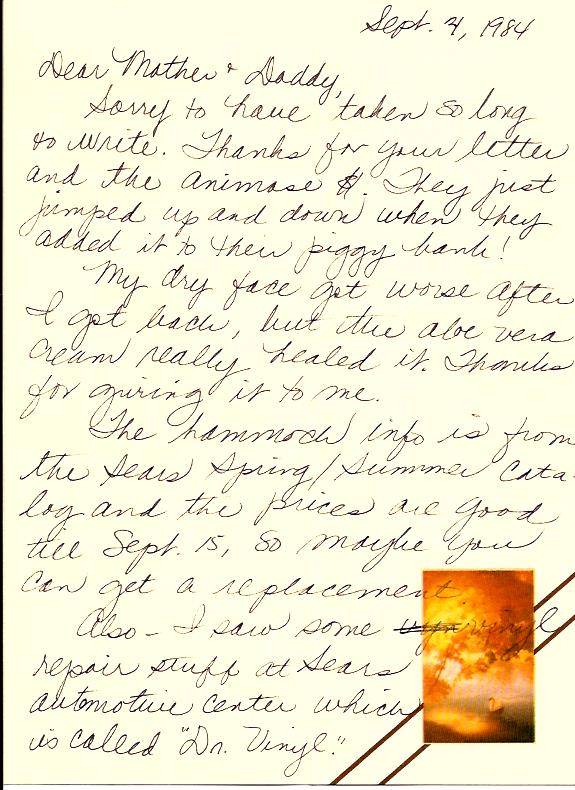 Sept. 4, 1984
Dear Mother & Daddy,
Sorry to have taken so long
to write. Thanks for your letter
and the animose $. They just
jumped up and down when they
added it to their piggy bank!
My dry face got worse after
I got back, but the aloe vera
cream really healed it. Thanks
for giving it to me.
The hammock info is from
the Sears Spring/Summer cata-
log and the prices are good
till Sept. 15, so maybe you
can get a replacement.
Also - I saw some vinyl
repair stuff at Sears
automotive center which
is called "Dr. Vinyl."